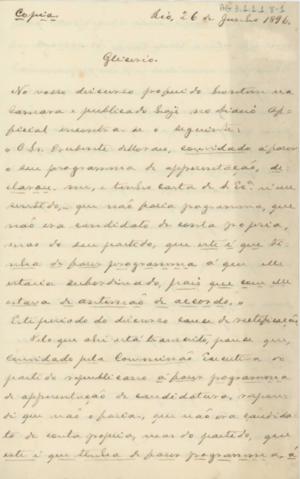 AG 3.1.1.1 8-1
Copia
Rio, 26 de Junho 1896.
Glicerio.
No vosso discurso proferido hontem na
Camara e publicado hoje no Diario Of-
ficial encontra-se o seguinte:
"O Sr. Prudente de Moraes, convidado a fazer
o seu programma de apresentação, de-
clarou-me, e tenho carta de S. Exª n'esse
sentido, que não fazia programma, que
não era candidato de conta propria,
mas do seu partido, que este é que ti-
nha de fazer programma á que elle
estaria subordinado, pois que com elle
estava de antemão de accordo."
Este periodo do discurso carece de rectificação.
Pelo que ahi está transcrito, parece que,
convidado pela Commissão Executiva do
partido republicano a fazer programma
de apresentação de candidatura, respon-
di que não o fazia, que não era candida-
to de conta propria, mas do partido, que
este é que tinha de fazer programma, á